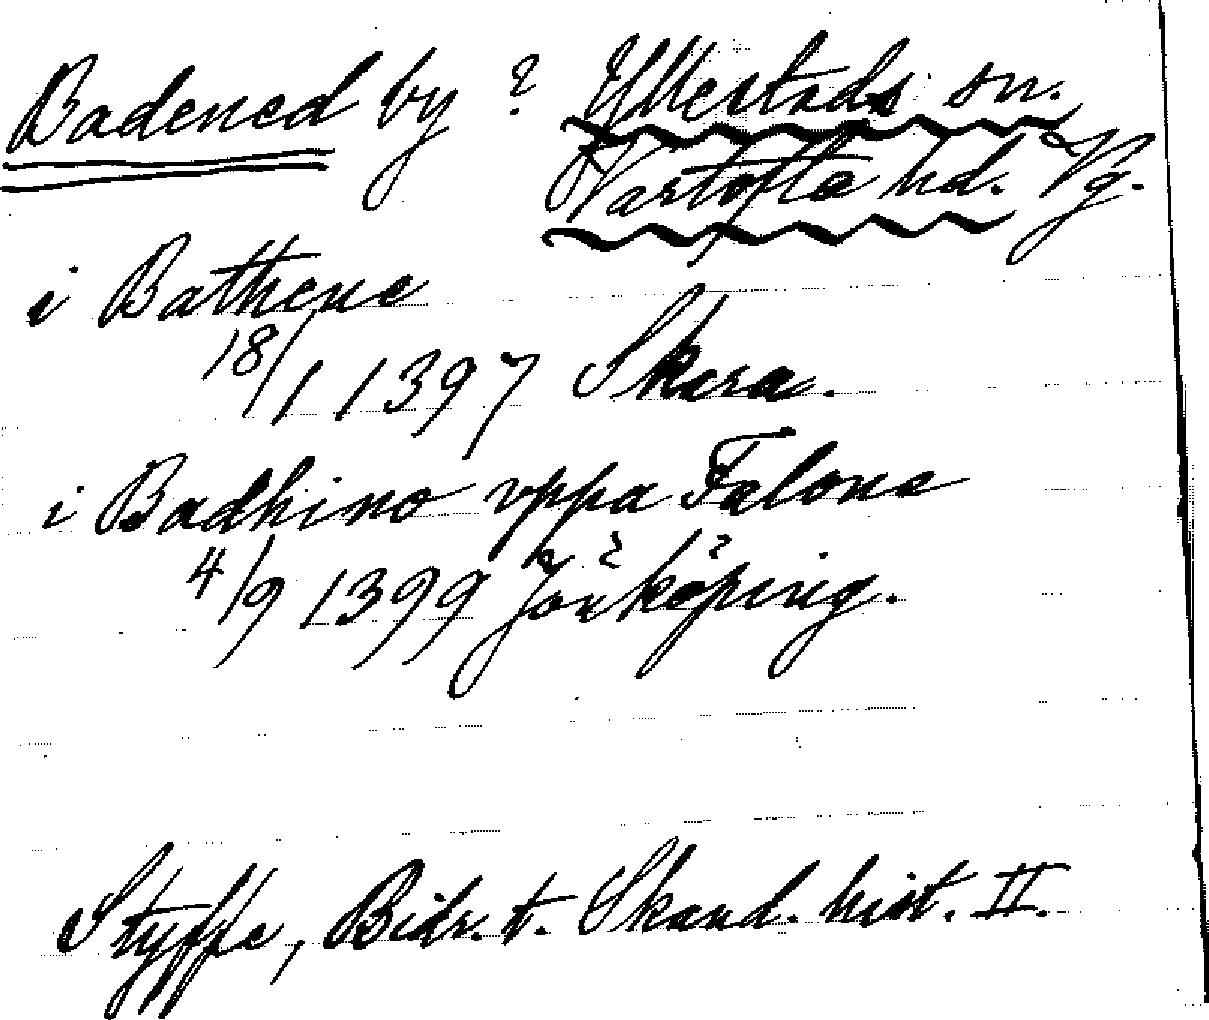 Badened by ? Yllestads sn.
Vartofta hd. Vg.
i Bathene
18/1 1397 Skara.
i Badhino vppa Falone
4/9 1399 Jönköping.
Styffe, Bidr. t. Skand. hist. II.